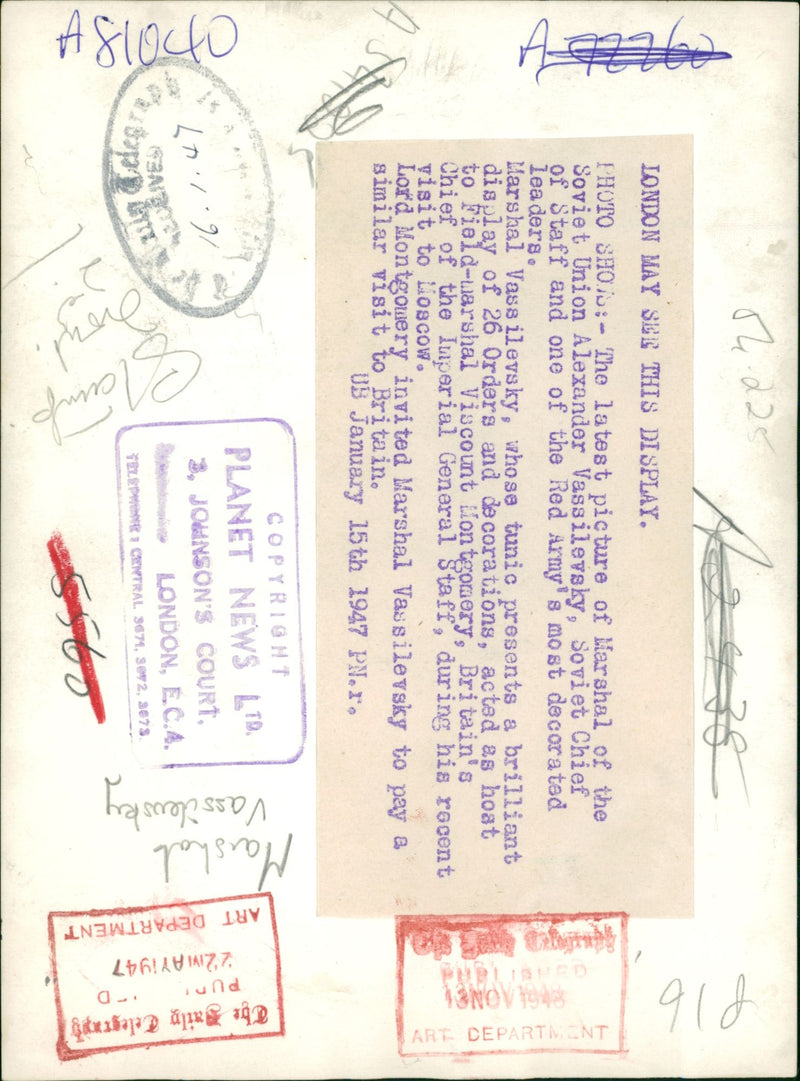 A81040
A 72760
LONDON MAY SEE THIS DISPLAY.
PHOTO SHOWS:- The latest picture of Marshal of the
Soviet Union Alexander Vassilevsky, Soviet Chief
of Staff and one of the Red Army's most decorated
leaders.
Marshal Vassilevsky, whose tunic presents a brilliant
display of 26 Orders and decorations, acted as host
to Field-marshal Viscount Montgomery, Britain's
Chief of the Imperial General Staff, during his recent
visit to Moscow.
Lord Montgomery invited Marshal Vassilevsky to pay a
similar visit to Britain.
UB January 15th 1947 PN.r.
Daily Telegraph
RECEIVED
COPYRIGHT
PLANET NEWS LTD.
3, JOHNSON'S COURT,
LONDON, E.C.4.
TELEPHONE: CENTRAL
5560
Marshal
Vassilevsky
The Daily Telegraph
22MAY1947
ART DEPARTMENT
The Daily Telegraph
PUBLISHED
13NOV1948
ART DEPARTMENT
918